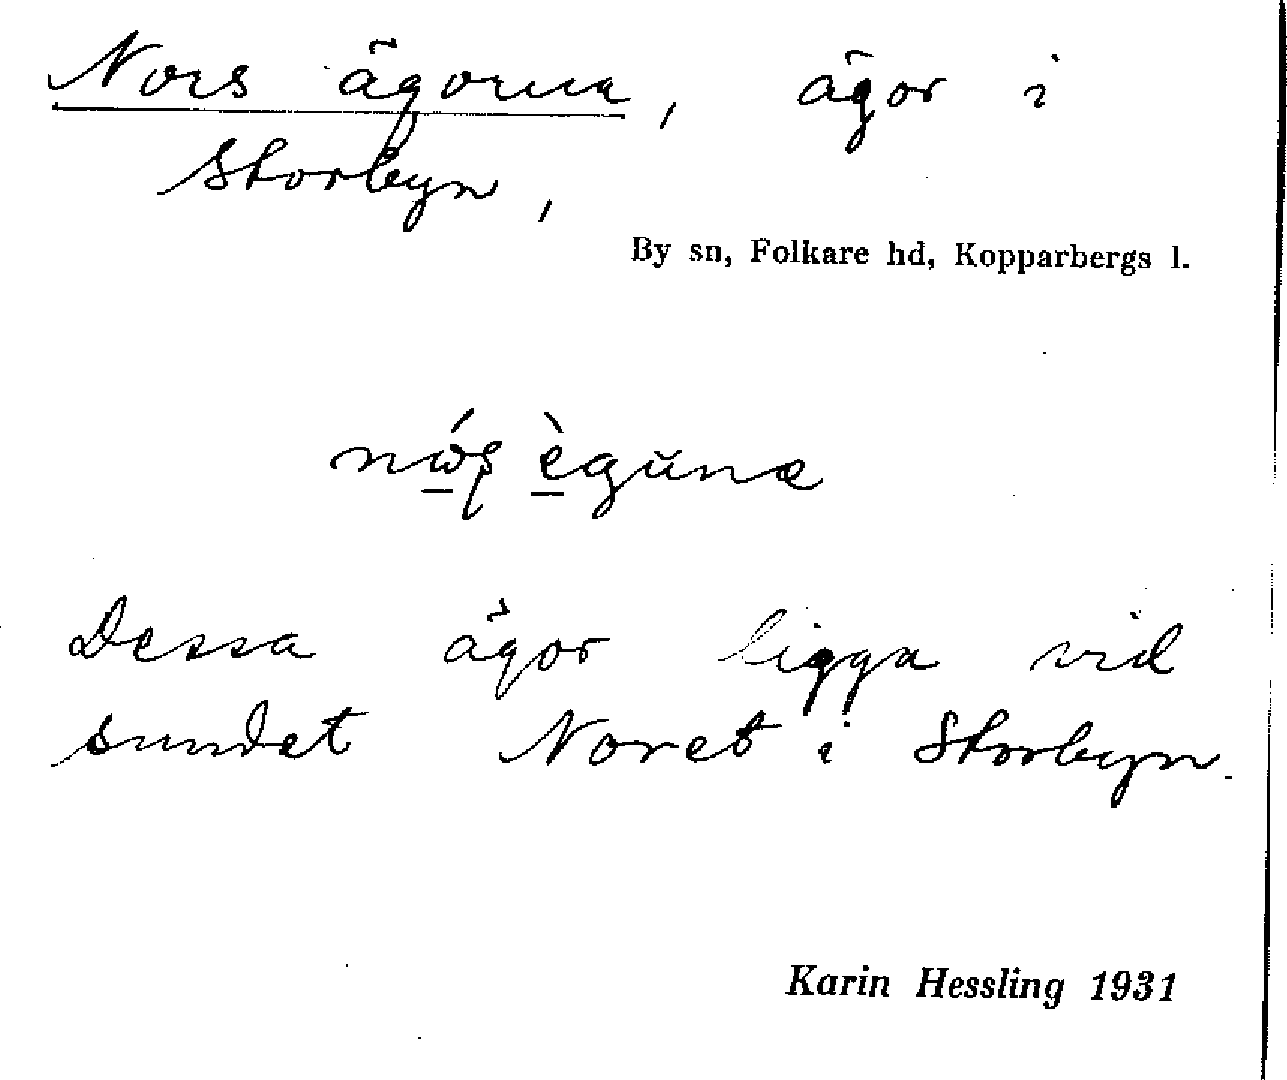 Nors ägorna, ägor i
Storbyn,
By sn, Folkare hd, Kopparbergs l.
Dessa ägor ligga vid
sundet Noret i Storbyn.
Karin Hessling 1931